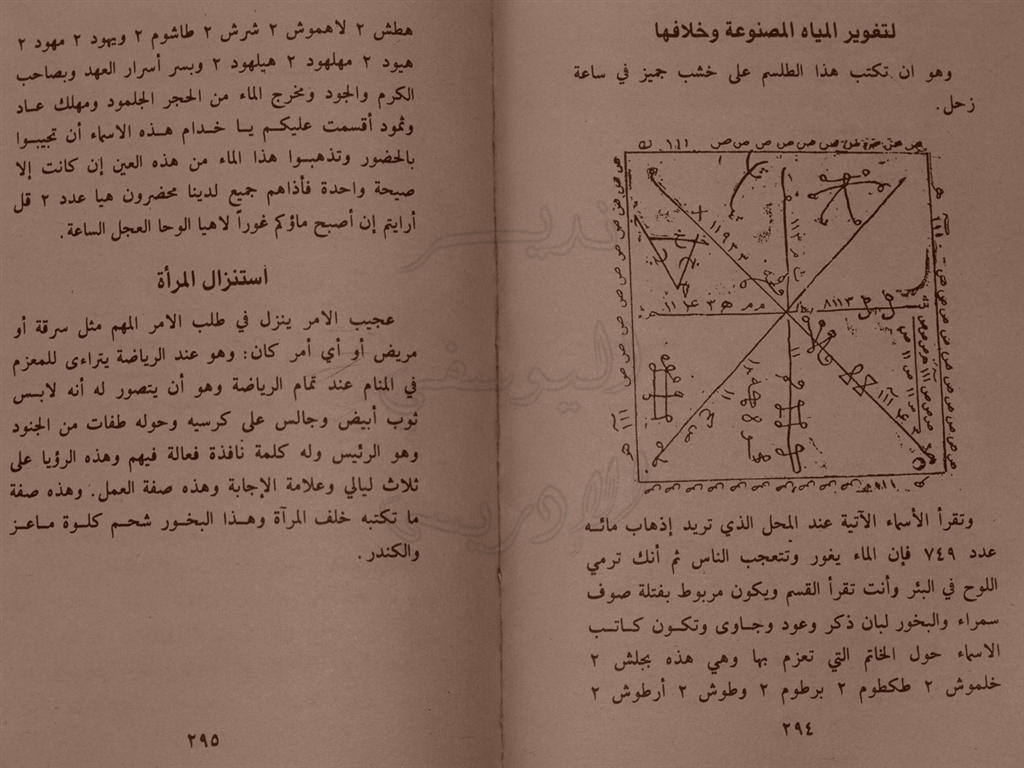 لتفوير المياه المصنوعة وخلافها
وهو ان تكتب هذا الطلسم على خشب جميز في ساعة
زحل.
وتقرأ الأسماء الآتية عند المحل الذي تريد إذهاب مائه
عدد ٧٤٩ فإن الماء يغور وتتعجب الناس ثم أنك ترمي
اللوح في البئر وأنت تقرأ القسم ويكون مربوط بفتلة صوف
سمراء والبخور لبان ذكر وعود وجاوى وتكون كاتب
الاسماء حول الخاتم التي تعزم بها وهي هذه بجلش ٢
خلموش ٢ طكطوم ٢ برطوم ٢ وطوش ٢ أرطوش ٢
٢٩٤
هطش ٢ لاهموش ٢ شرش ٢ طاشوم ٢ ويهود ٢ مهود ٢
هيود ٢ مهلهود ٢ هيلهود ٢ وبسر أسرار العهد وبصاحب
الكرم والجود ومخرج الماء من الحجر الجلمود ومهلك عاد
وثمود أقسمت عليكم يا خدام هذه الاسماء أن تجيبوا
بالحضور وتذهبوا هذا الماء من هذه العين إن كانت إلا
صيحة واحدة فأذاهم جميع لدينا محضرون هيا عدد ٢ قل
أرايتم إن أصبح ماؤكم غوراً لاهيا الوحا العجل الساعة.
استنزال المرأة
عجيب الامر ينزل في طلب الامر المهم مثل سرقة أو
مريض أو أي أمر كان: وهو عند الرياضة يتراءى للمعزم
في المنام عند تمام الرياضة وهو أن يتصور له أنه لابس
ثوب أبيض وجالس على كرسيه وحوله طفات من الجنود
وهو الرئيس وله كلمة نافذة فعالة فيهم وهذه الرؤيا على
ثلاث ليالي وعلامة الإجابة وهذه صفة العمل. وهذه صفة
ما تكتبه خلف المرآة وهذا البخور شحم كلوة ماعز
والكندر.
٢٩٥